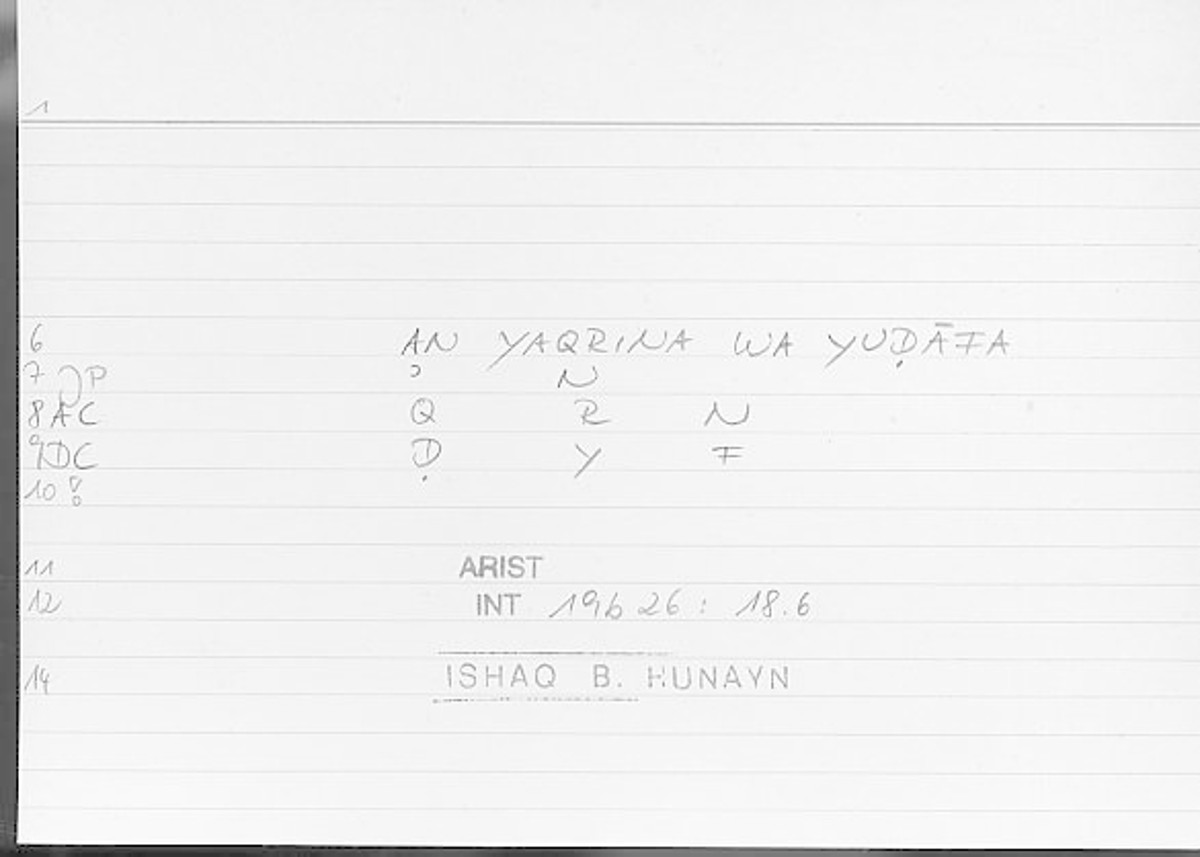 1
6 AN YAQRINA WA YUḌĀFA
7 JP ɔ N
8 AC Q R N
9 DC Ḍ Y F
10
11 ARIST
12 INT 19b 26 : 18.6
14 ISHAQ B. HUNAYN